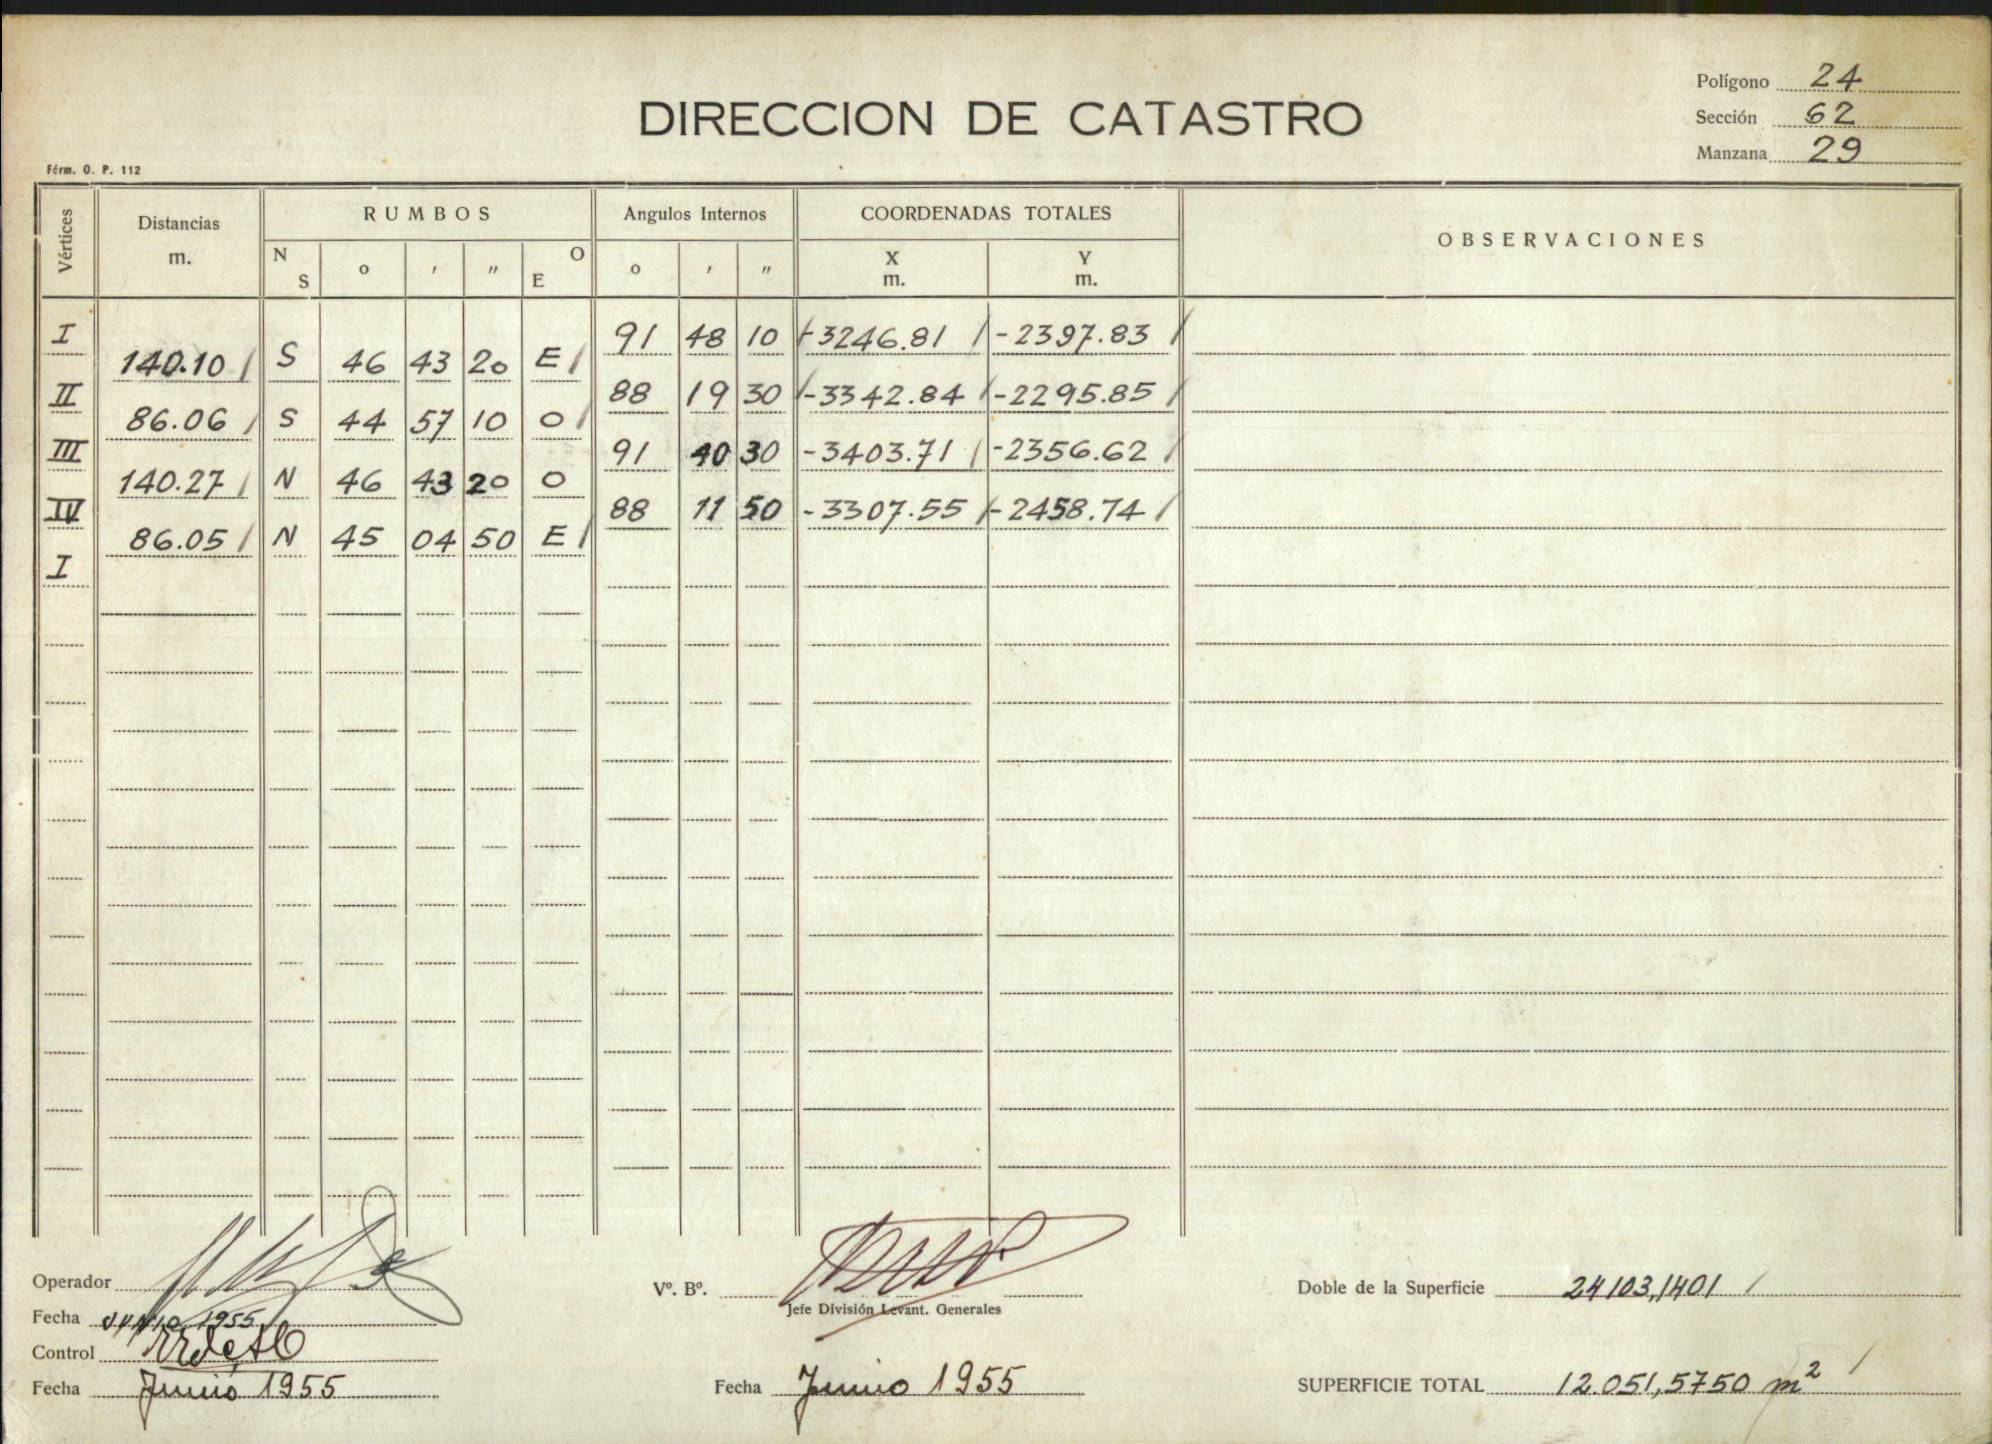 Polígono 24
DIRECCION DE CATASTRO
Sección 62
Manzana 29
Fórm. O. P. 112
Vértices Distancias m. RUMBOS N S o ' " O E Angulos Internos o ' " COORDENADAS TOTALES X m. Y m. OBSERVACIONES
I 91 48 10 -3246.81 / -2397.83 /
140.10 / S 46 43 20 E /
II 88 19 30 -3342.84 / -2295.85 /
86.06 / S 44 57 10 O /
III 91 40 30 -3403.71 / -2356.62 /
140.27 / N 46 43 20 O
IV 88 11 50 -3307.55 / -2458.74 /
86.05 / N 45 04 50 E /
I
Operador
Vº. Bº.
Doble de la Superficie 24103,1401 /
Jefe División Levant. Generales
Fecha JUNIO 1955
Control
Fecha Junio 1955
Fecha Junio 1955
SUPERFICIE TOTAL 12.051,5750 m² /